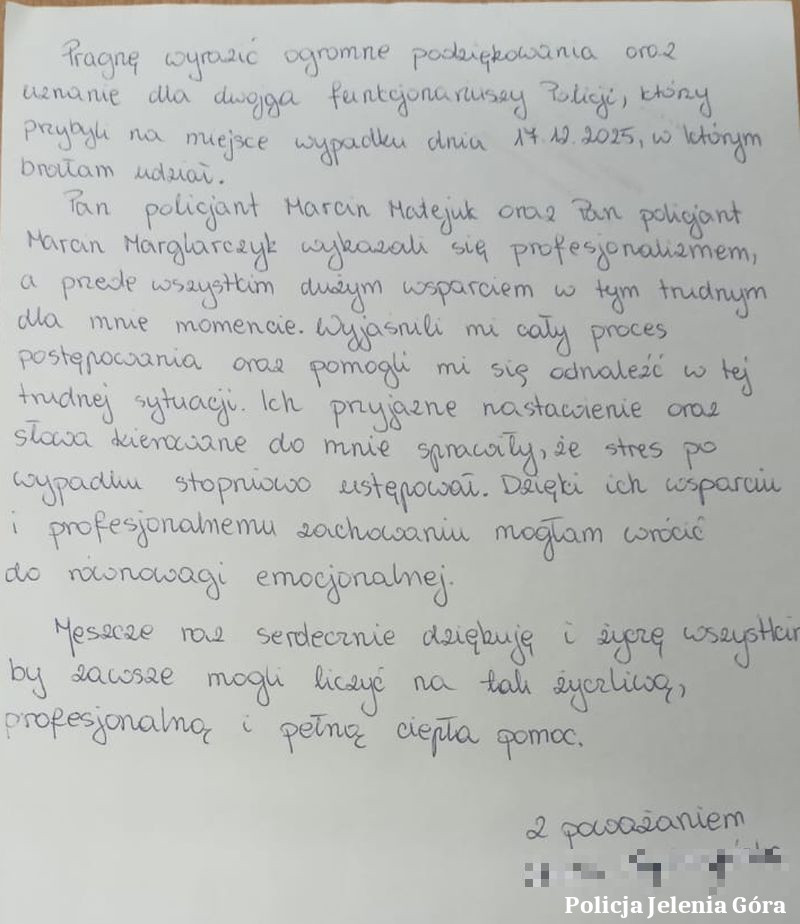 Pragnę wyrazić ogromne podziękowania oraz
uznanie dla dwojga funkcjonariuszy Policji, którzy
przybyli na miejsce wypadku dnia 17.12.2025, w którym
brałam udział.
Pan policjant Marcin Matejuk oraz Pan policjant
Marcin Marglarczyk wykazali się profesjonalizmem,
a przede wszystkim dużym wsparciem w tym trudnym
dla mnie momencie. Wyjaśnili mi cały proces
postępowania oraz pomogli mi się odnaleźć w tej
trudnej sytuacji. Ich przyjazne nastawienie oraz
słowa kierowane do mnie sprawiły, że stres po
wypadku stopniowo ustępował. Dzięki ich wsparciu
i profesjonalnemu zachowaniu mogłam wrócić
do równowagi emocjonalnej.
Jeszcze raz serdecznie dziękuję i życzę wszystkim
by zawsze mogli liczyć na taką życzliwą,
profesjonalną i pełną ciepła pomoc.
Z poważaniem
Policja Jelenia Góra